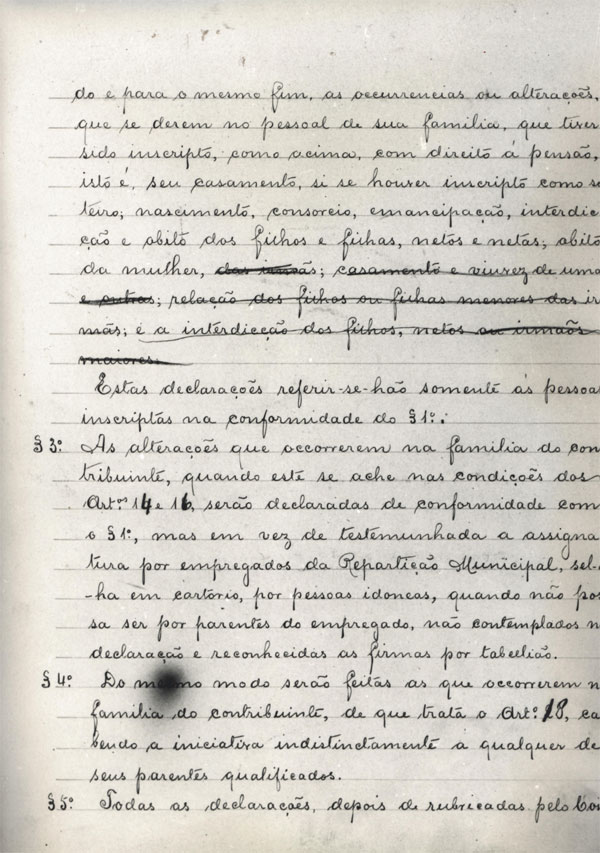 do e para o mesmo fim, as occurrencias ou alterações,
que se derem no pessoal de sua familia, que tiver
sido inscripto, como acima, com direito á pensão,
isto é, seu casamento, si se houver inscripto como so
teiro; nascimento, consorcio, emancipação, interdic
ção e obito dos filhos e filhas, netos e netas; obito
da mulher, das irmãs; casamento e viuvez de uma
e outras; relação dos filhos ou filhas menores das ir
mãs; e a interdicção dos filhos, netos ou irmãos
maiores.
Estas declarações referir-se-hão somente ás pessoa
inscriptas na conformidade do §1º.
§3º As alterações que occorrerem na familia do con
tribuinte, quando este se ache nas condições dos
Artºs 14 e 16, serão declaradas de conformidade com
o §1º, mas em vez de testemunhada a assigna
tura por empregados da Repartição Municipal, sel-
-ha em cartorio, por pessoas idoneas, quando não pos
sa ser por parentes do empregado, não contemplados n
declaração e reconhecidas as firmas por tabellião.
§4º Do mesmo modo serão feitas as que occorrerem n
familia do contribuinte, de que trata o Artº 18, ca
bendo a iniciativa indistinctamente a qualquer de
seus parentes qualificados.
§5º Todas as declarações, depois de rubricadas pelo